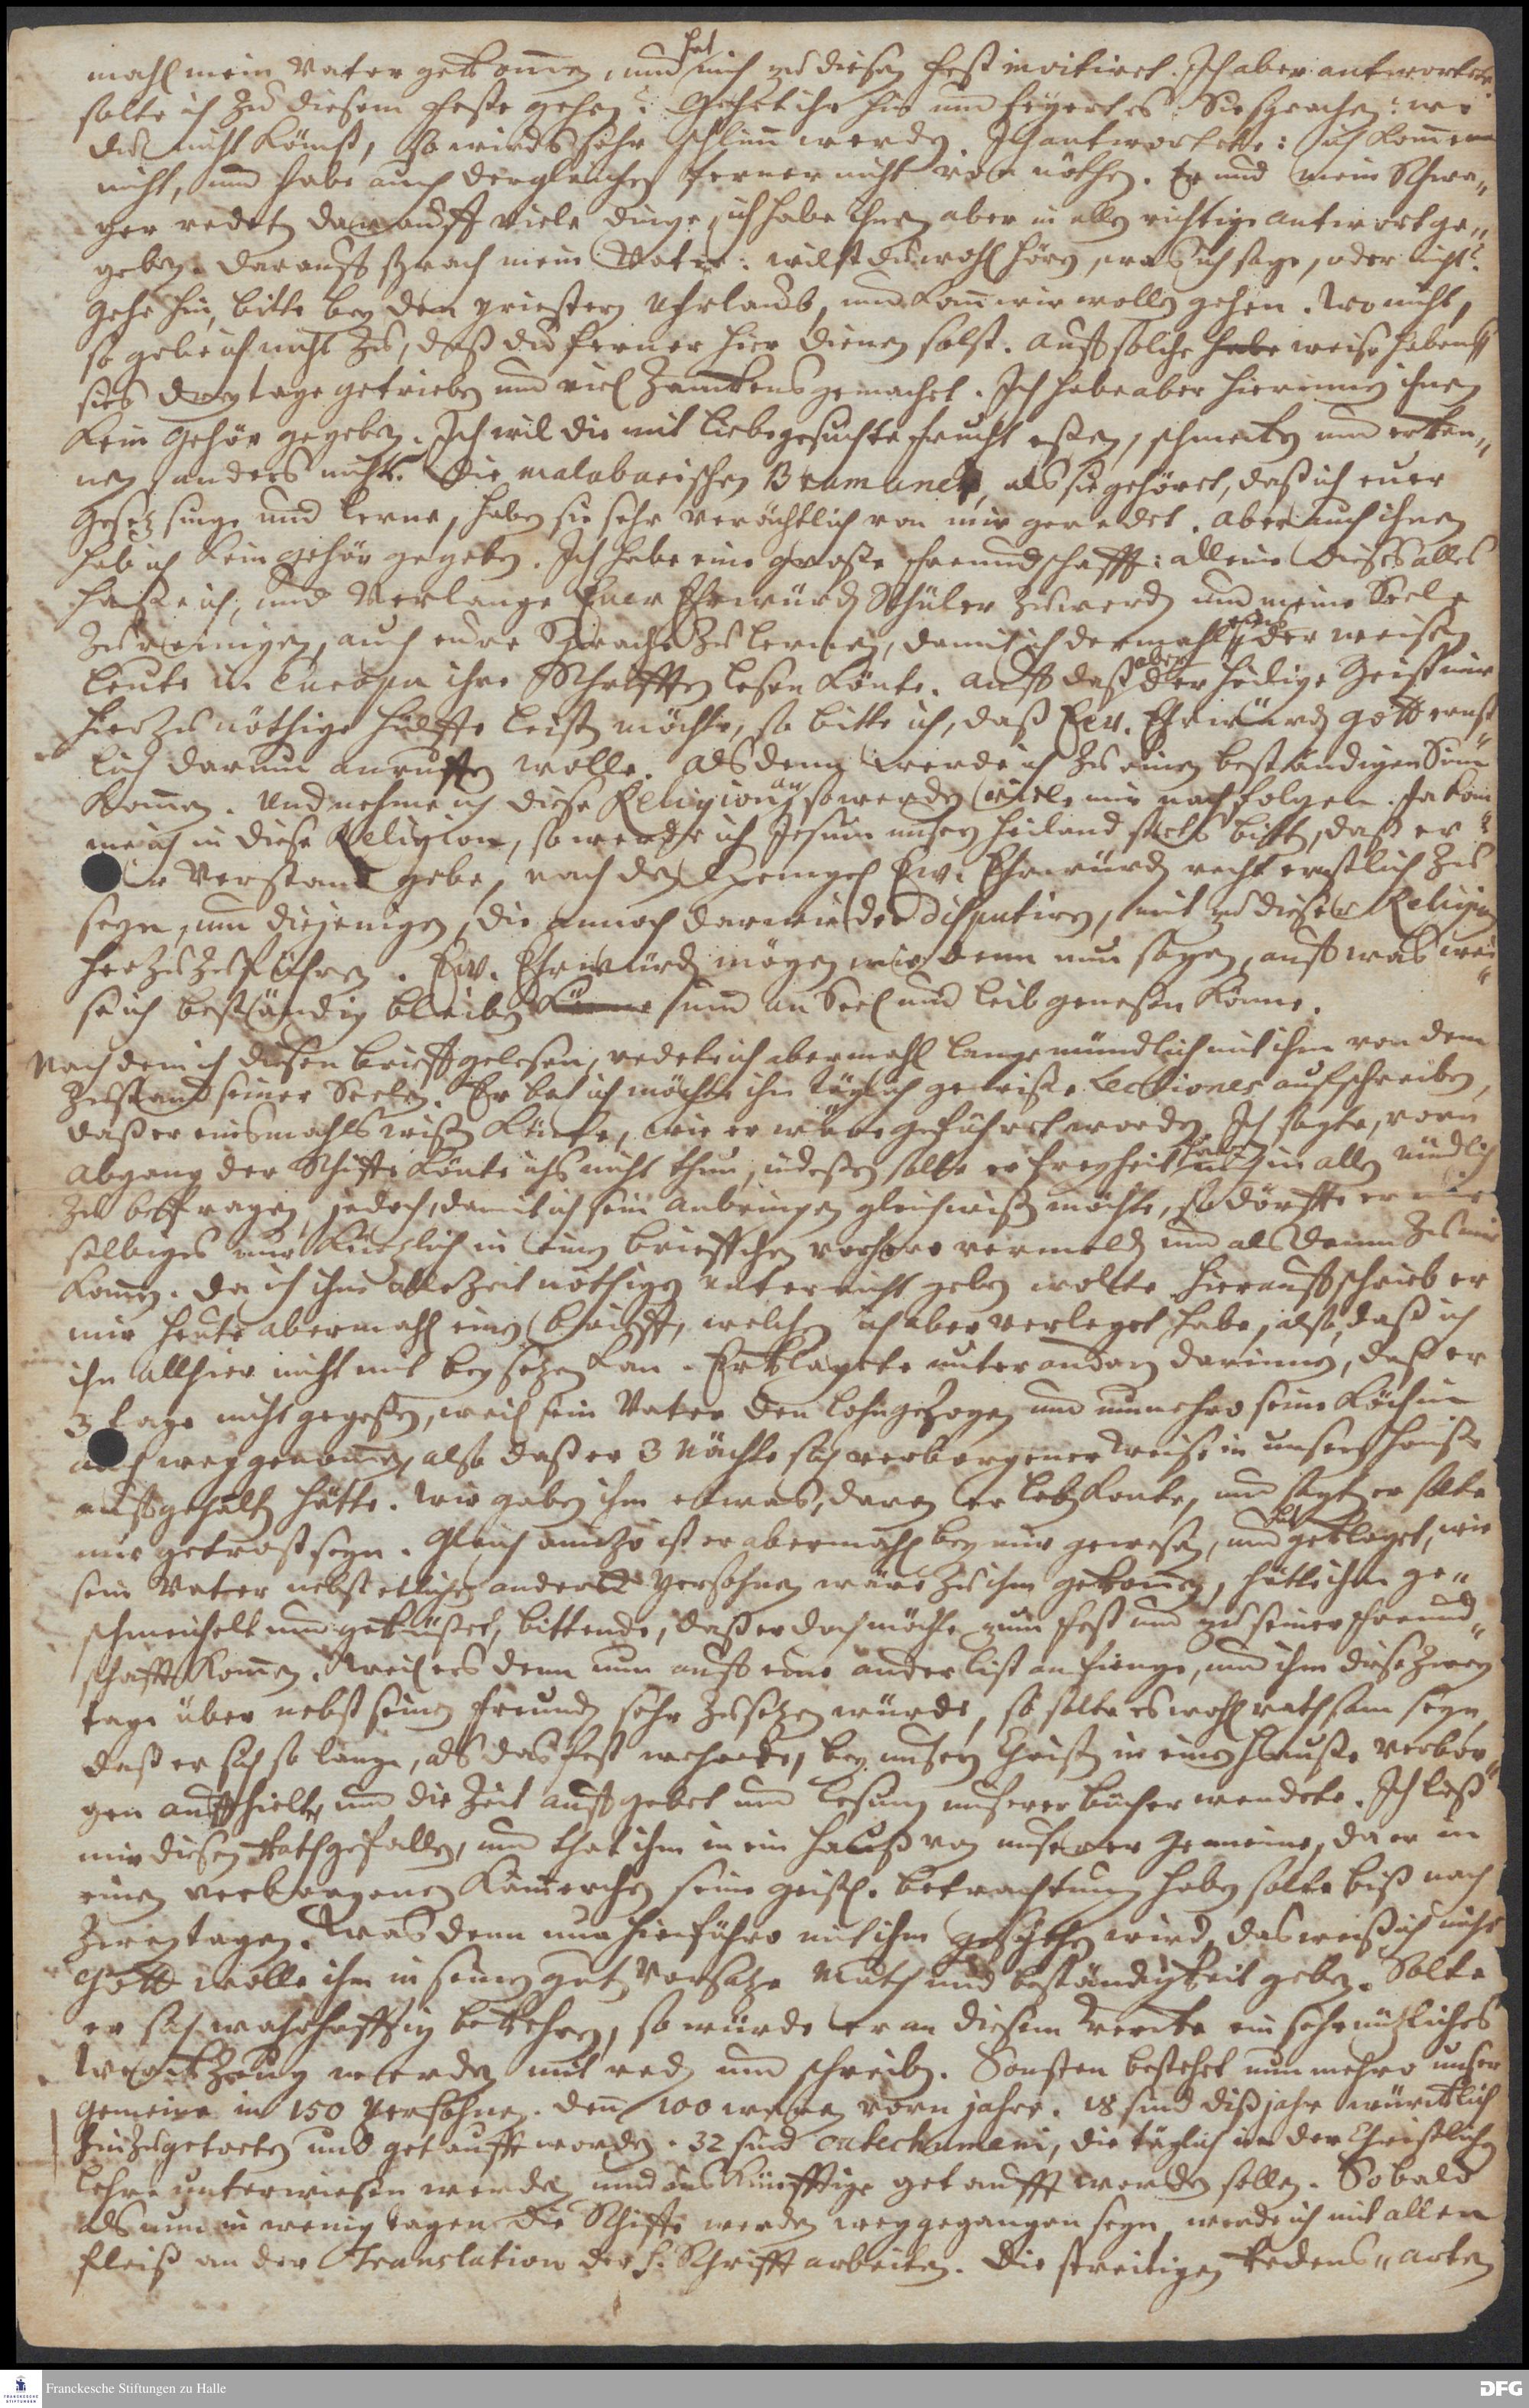 mahl mein Vater gekom̄en, und hat mich zu diesen fest invitiret. Ich aber antwortete
solte ich zu diesem Feste gehen? Gehet ihr hin und feyert es. Sie sprachen: wo
du nicht kömst, so wirds sehr schlim̄ werden. Ich antwortete: ich kom̄e
nicht, und habe auch dergleichen ferner nicht von nöthen. Er und mein Schwa„
ger redeten darauff viele dinge, ich habe ihnen aber in allen richtige antwort ge„
geben. Darauff sprach mein Vater: wilst du wohl hören, was ich sage, oder nicht?
Gehe hin, bitte bey den priestern Uhrlaub, und kom̄ wir wollen gehen. Wo nicht,
so gebe ich nicht zu, daß du ferner hier dienen solst. Auff solche weise haben
sies drey tage getrieben und viel Zanckens gemachet. Ich habe aber hierinnen ihnen
kein Gehör gegeben. Ich wil die mit liebe gesuchte frucht eßen, schmecken und erken„
nen, anders nichts. Die malabarischen Bramanes, als sie gehöret, daß ich euer
Gesetz singe und lerne, haben sie sehr verächtlich von mir geredet. Aber auch ihnen
hab ich kein gehör gegeben. Ich habe eine große freundschafft: alleine dieses alles
haße ich, und verlange Euer Ehrwürden Schüler zu werden und meine Seele
zu reinigen, auch eure Sprache zu lernen, damit ich dermahleins der weisen
leute in Europa ihre Schrifften lesen könte. Auff daß aber der heilige Geist mir
hierzu nöthige hülffe leisten möchte, so bitte ich, daß Ew. Ehrwürden Gott ernst„
lich darum anruffen wolle. Als denn werde ich zu einen beständigen Sinn
kom̄en. Und nehme ich diese Religion an, so werden viele mir nachfolgen. Ja kom̄
me ich in diese Religion, so werde ich Jesum unsern Heiland stets bitten, daß er
Verstand gebe, nach den Exempel Ew. Ehrwürden recht ernstlich zu
seyn, um diejenigen, die annoch darwieder disputiren, mit zu dieser Religion
herzuzuführen. Ew. Ehrwürden mögen mir denn nun sagen, auff was wei„
se ich beständig bleiben und an Seel und leib genesen könne.
Nachdem ich diesen brieff gelesen, redete ich abermahl lange mündlich mit ihm von dem
Zustand seiner Seelen. Er bat ich möchte ihm täglich gewiße Lectiones aufschreiben,
daß er einsmahls wißen könte, wie er wäre geführet worden. Ich sagte, vorn
Abgang der Schiffe könte ichs nicht thun, indeßen solte er freyheit haben in allen mündlich
zu befragen, jedoch, damit ich sein anbringen gleich wißen möchte, so dörffte er mir
selbiges nur kürtzlich in einen brieffchen vorhero vermelden und als denn zu mir
kom̄en. Da ich ihm allezeit nöthigen unterricht geben wolte. Hierauff schrieb er
mir heute abermahl einen brieff, welchen ich aber verleget habe, also, daß ich
ihn allhier nicht mit beysetzen kan. Er klagete unter andern darinnen, daß er
3 tage nicht gegeßen, weil sein Vater den lohn gezogen und nunmehro seine Köchin
auch weggenom̄en, also daß er 3 Nächte sich verborgener weise in unsern hause
auffgehalten hätte. Wir gaben ihm etwas, davon er leben konte, und sagten er solte
nur getrost seyn. Gleich anietzo ist er abermahl bey mir gewesen, und hat geklaget, wie
sein Vater nebst etlichen andern persohnen wäre zu ihm gekom̄en, hätte ihm ge„
schmeichelt und geküßet, bittende, daß er doch möchte zum fest und zu seiner freund„
schafft kom̄en. Weil es denn nun auff eine andere list anfienge, und ihm diese zwey
tage über nebst seinen freunden sehr zusetzen würde, so solte es wohl rathsam seyn,
daß er sich so lange, als das fest wehrete, bey unsern Christen in einen hauße verbor„
gen auffhielte, und die Zeit auff gebet und lesung unserer bücher wendete. Ich ließ
mir diesen Rath gefallen, und that ihm in ein hauß von unserer Gemeine, da er in
einen verborgenen Kämmerchen seine geistl. betrachtung haben solte biß nach
zwey tagen. Was denn nun hinführo mit ihm geschehen wird, das weiß ich nicht
Gott wolle ihm in seinen guten Vorsatze Muth und beständigkeit geben. Solte
er sich wahrhafftig bekehren, so würde er an diesem Wercke ein sehr nützliches
Werckzeug werden mit reden und schreiben. Sonsten bestehet nunmehro unser
Gemeine in 150 persohnen. Den̄ 100 waren vorn jahre. 18 sind diß jahr würcklich
hinzugetreten und getaufft worden. 32 sind catechumeni, die täglich in der Christlichen
lehre unterwiesen werden und ins künfftige getaufft werden sollen. So bald
als nun in wenig tagen die Schiffe werden weggegangen seyn, werde ich mit allen
fleiß an der Translation der H. Schrifft arbeiten. Die streitigen Redens„arten
Franckesche Stiftungen zu Halle
DFG